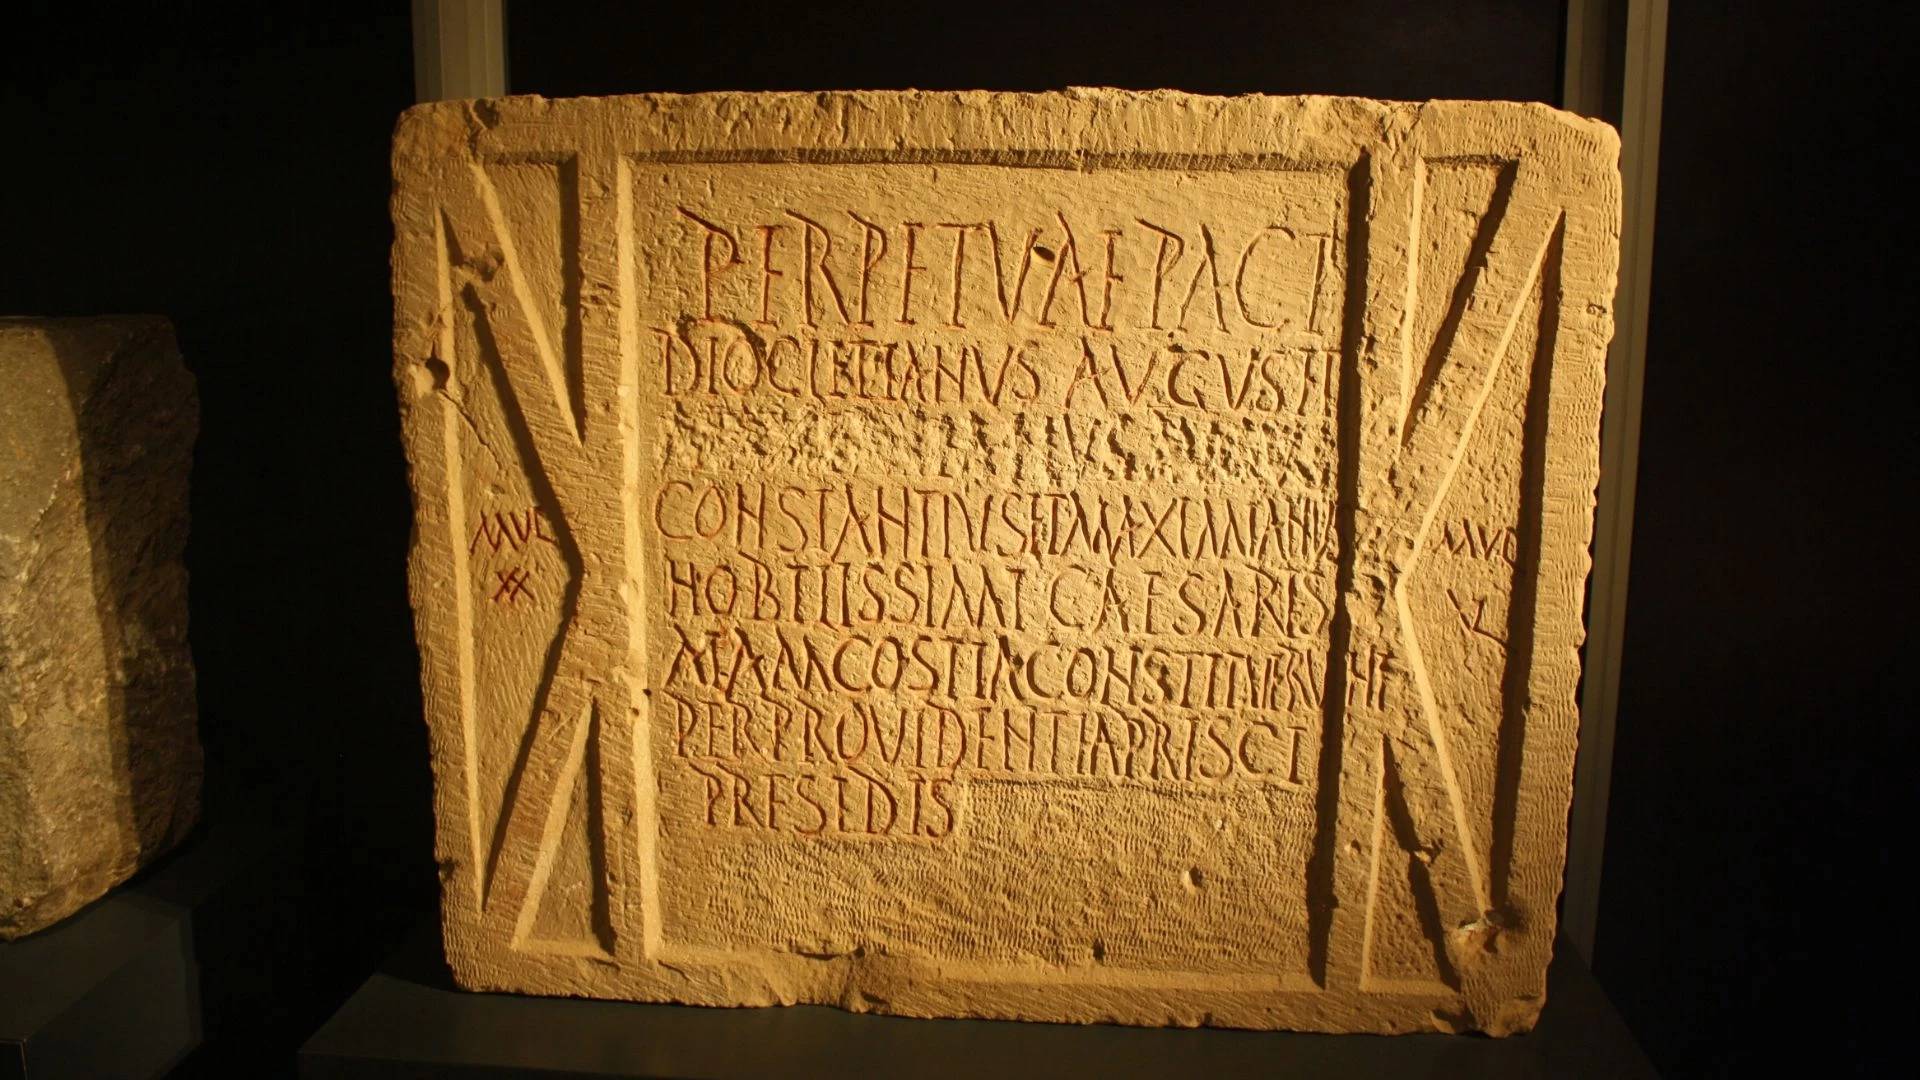 PERPETVAE PACI
DIOCLETIANVS AVGVS ET
CONSTANTIVS ET MAXIMIANVS
NOBILISSIMI CAESARIS
ALAM COSTIA CONSTITVERVNT
PER PROVIDENTIA PRISCI
PRESEDIS
MVL
XX
MVL
XL